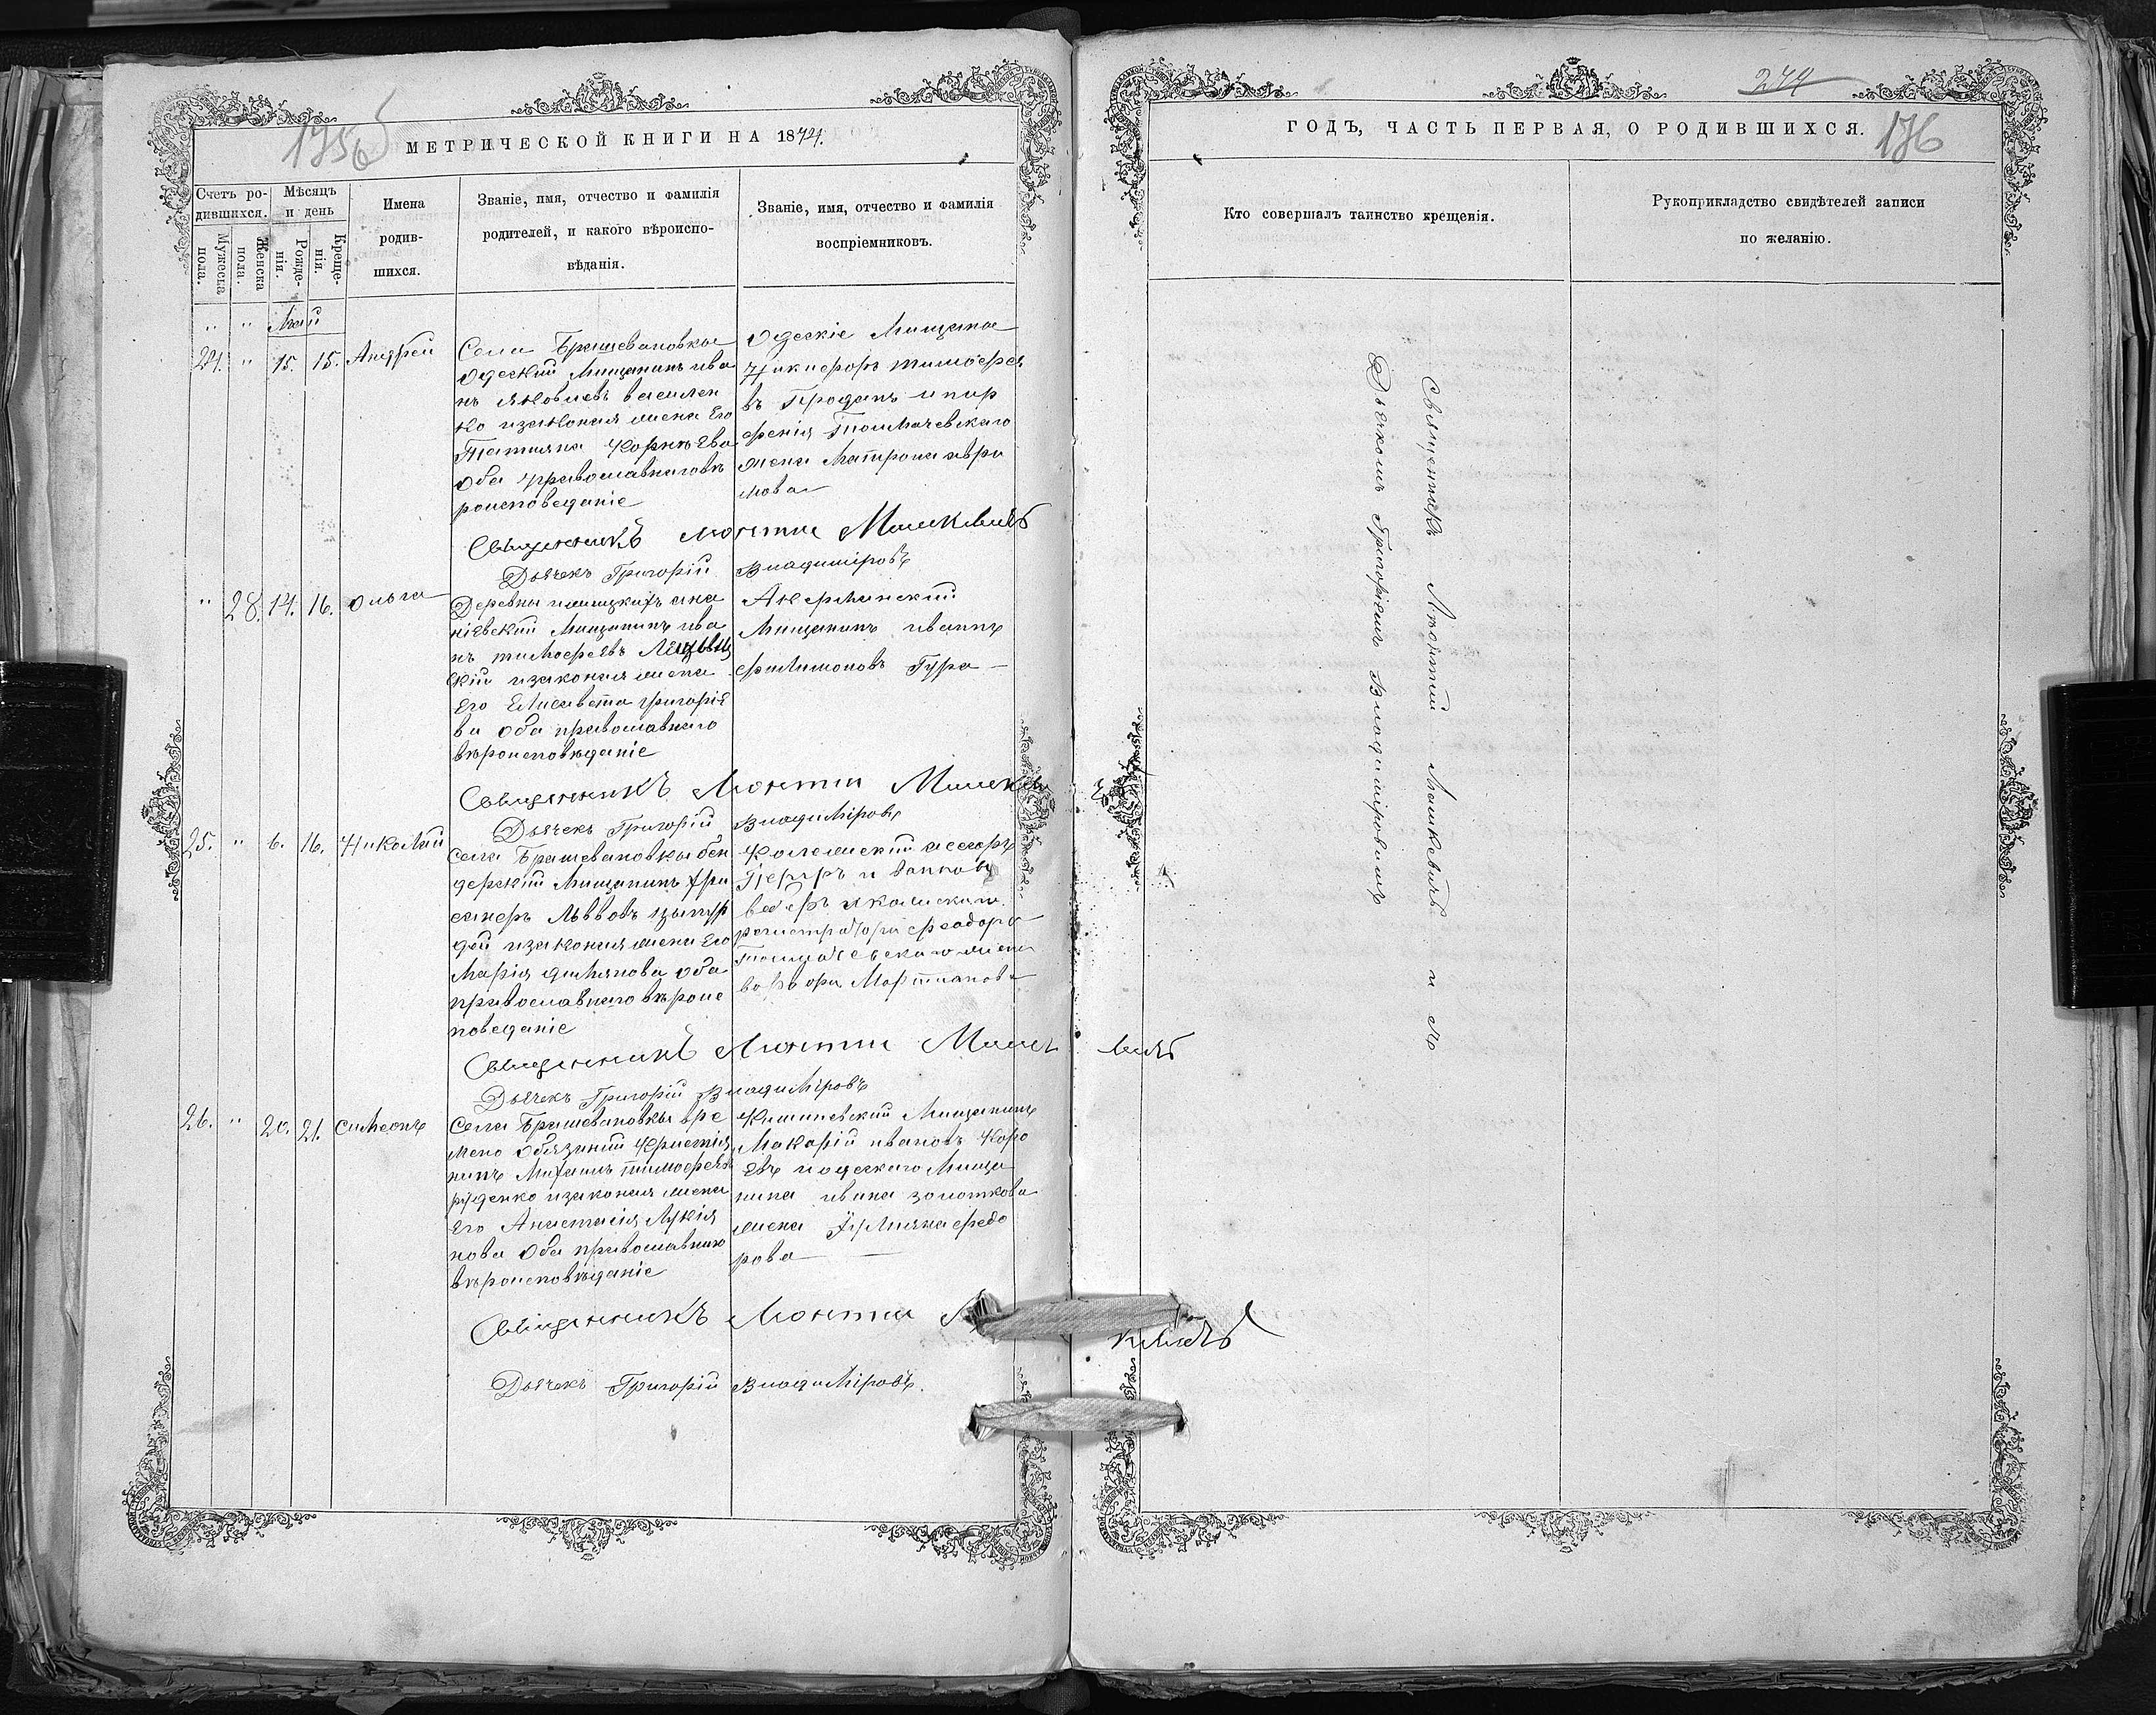 175 об
МЕТРИЧЕСКОЙ КНИГИ НА 1874.
Счетъ ро-
дившихся.
Мужеска
пола.
Женска
пола.
Мѣсяцъ
и день
Рожде-
нія.
Креще-
нія.
Имена
родив-
шихся.
Званіе, имя, отчество и фамилія
родителей, и какого вѣроиспо-
вѣданія.
Званіе, имя, отчество и фамилія
воспріемниковъ.
" " Май
24. " 15. 15. Андрей
Села Брашевановки
Одескій Мищанинъ ива
нъ яковлевъ василен
ко изаконая жена Его
Татияна Корнѣева
оба православнаго вѣ
роисповеданіе
Одескіе Мищане
Никифоръ тимофее
въ Проданъ и пор
фенія Толмачевскаго
жена Матрона авра
мова
Священникъ Леонтий Машкевичъ
Дьячекъ Григорій Владиміровъ
" 28. 14. 16. Ольга
Деревни
Мищанинъ ива
нъ тимофеевъ
кій изаконая жена
Его Елисавета григоріе
ва оба православнаго
вѣроисповѣданіе
Акерманский
Мищанинъ иваннъ
филимоновъ Гура
Священникъ Леонтий
Дьячекъ Григорій Владиміровъ
25. " 6. 16. Николай
Села Брашевановки бен
дерский Мищанинъ
Львовъ
изаконая жена Его
Марія Дамянова оба
православнаго вѣроис
поведаніе
Колежский асесоръ
Петръ
регистратора феодора
жена
Священникъ Леонтий
Дьячекъ Григорій Владиміровъ
26. " 20. 21. Симеонъ
Села Брашевановки вре
мено Обязаний Кристия
нинъ Михаилъ тимофеевъ
руденко изаконая жена
Его Анастасія Лукія
нова Оба православнаго
вѣроисповѣданіе
Кишиневский Мищанинъ
Макарій ивановъ Коро
евъ иодескаго Мища
нина ивана золоткова
жена Улияна федо
рова
Священникъ Леонтий
Дьячекъ Григорій Владиміровъ.
274
176
ГОДЪ, ЧАСТЬ ПЕРВАЯ, О РОДИВШИХСЯ.
Кто совершалъ таинство крещенія.
Рукоприкладство свидѣтелей записи
по желанію.
Священникъ Леонтий Машкевичъ и съ
Дьячкомъ Григоріемъ Владиміровимъ